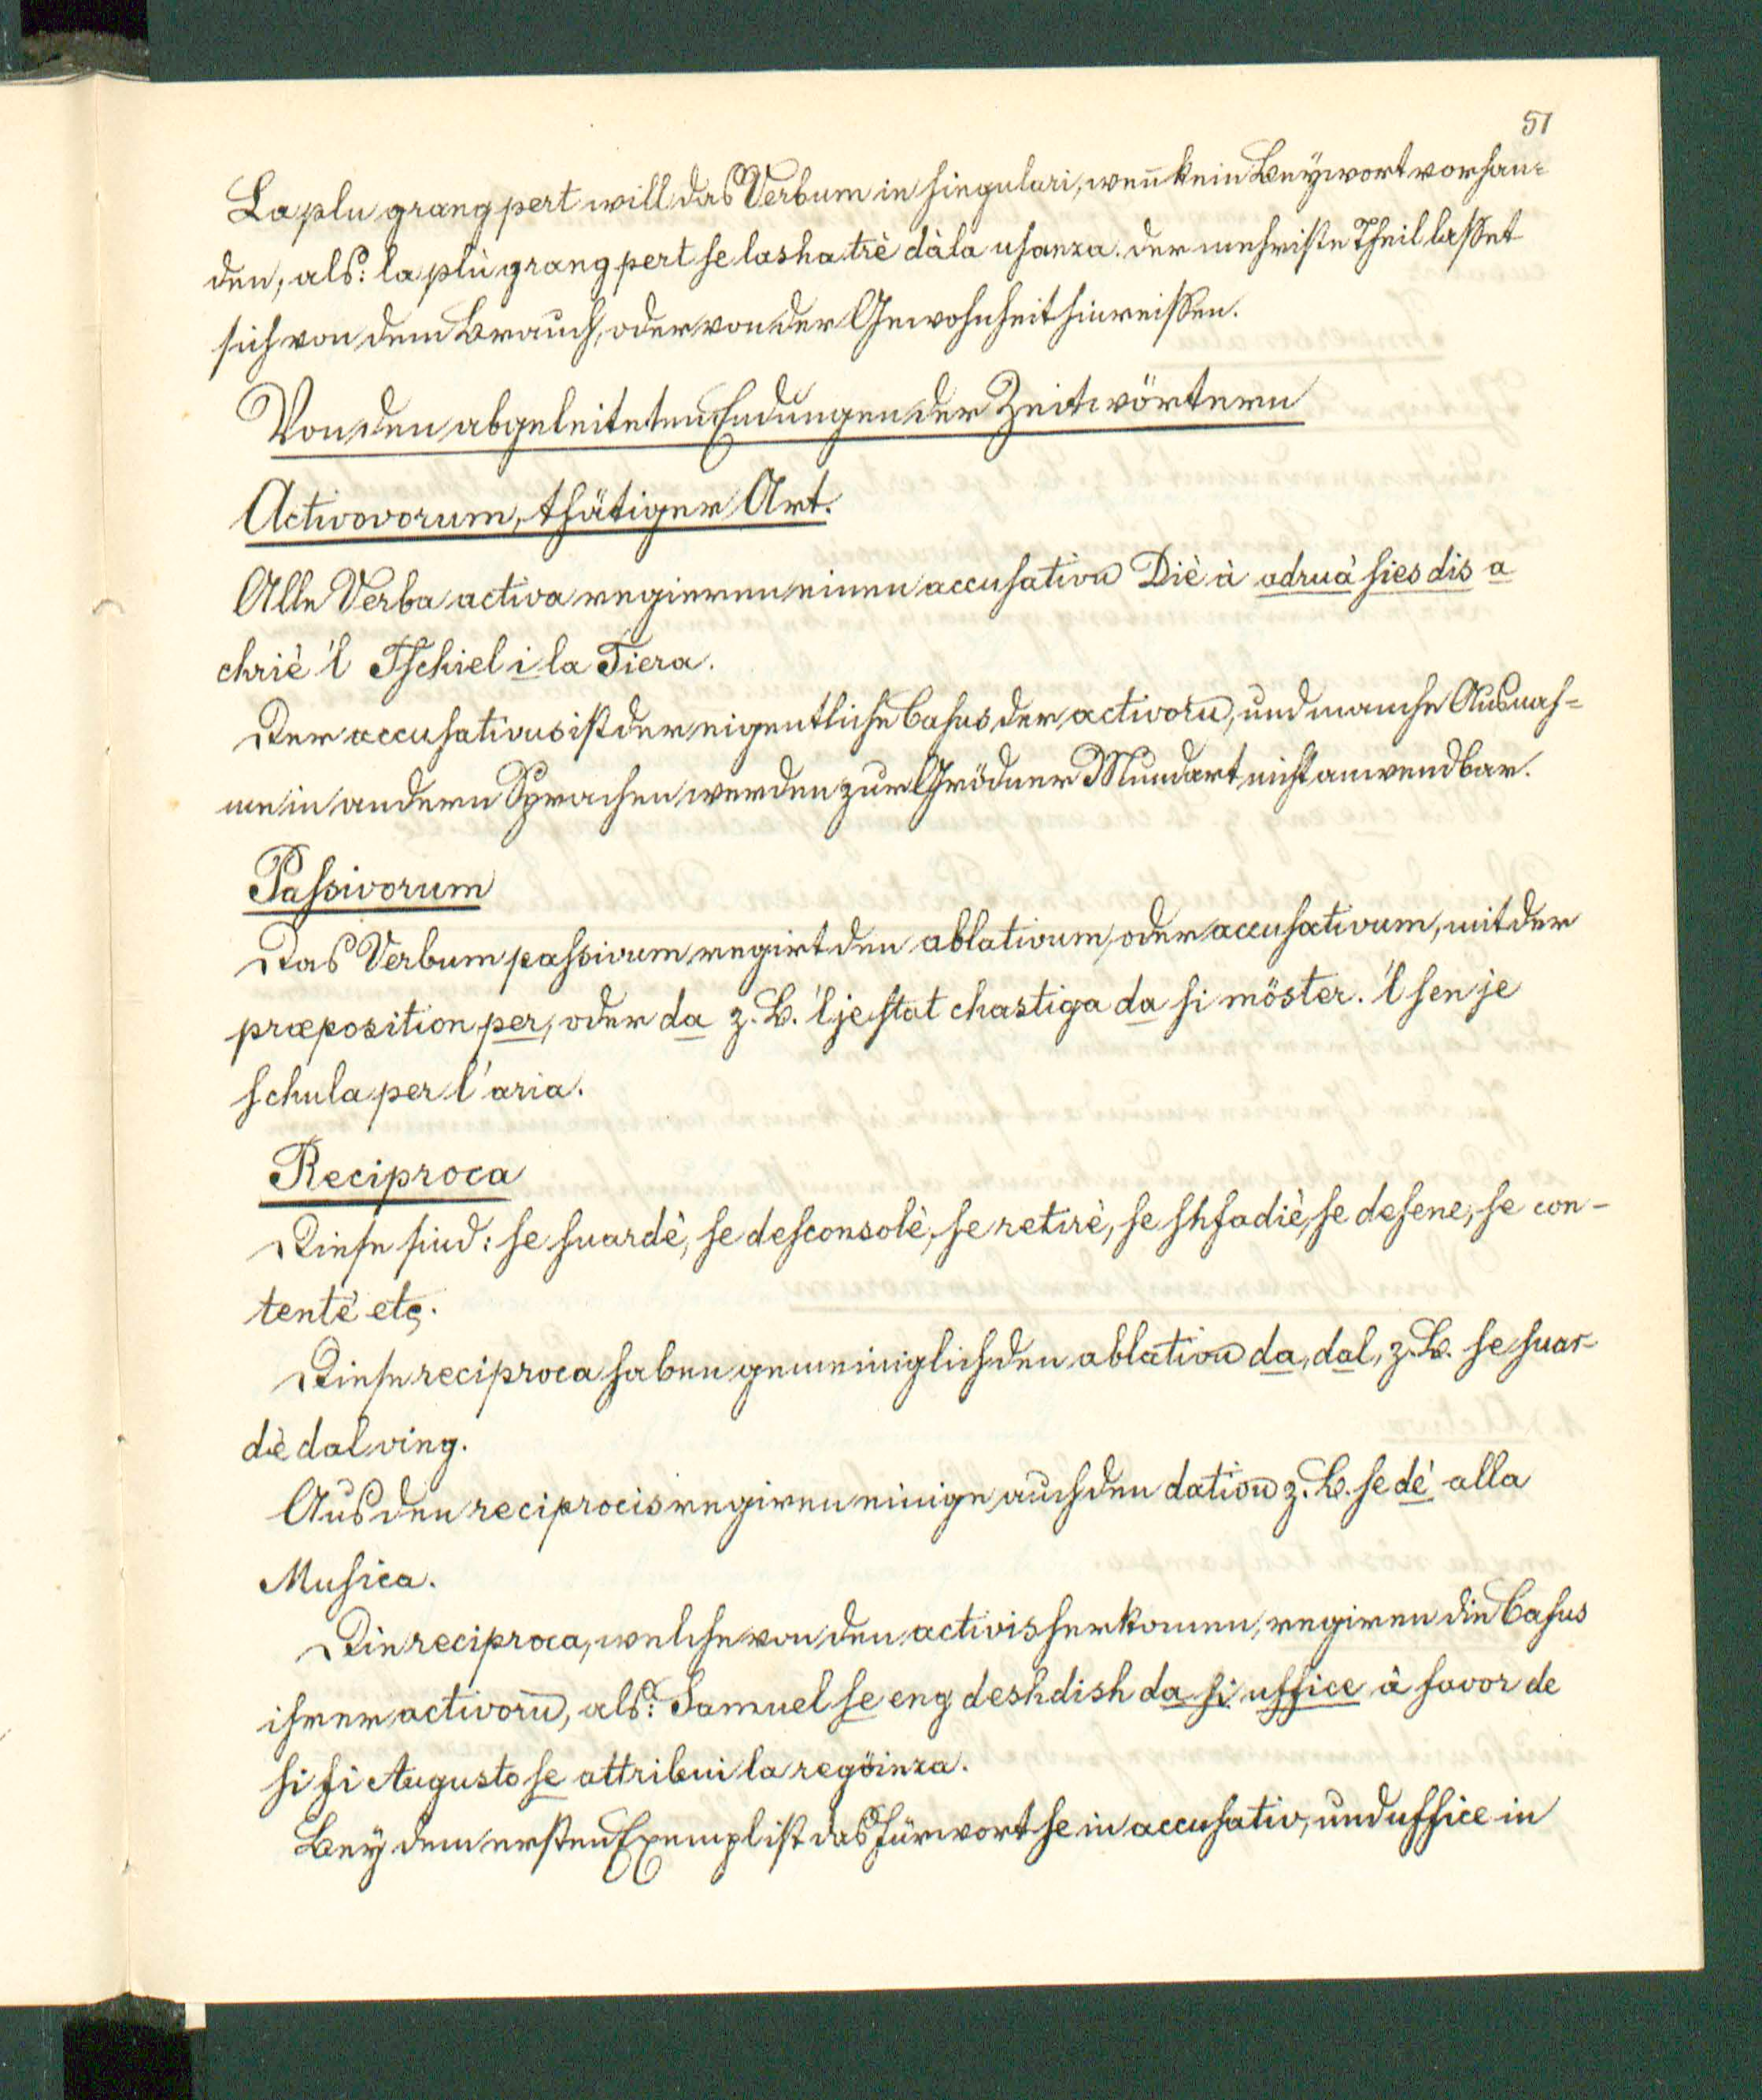 51
La plu grang pert will das Verbum in singulari, wen̄ kein Beywort vorhan=
den, als: la plù grang pert se lasha trè dàla usanza. der mehriste Theil lasset
sich von dem Brauch, oder von der Gewohnheit hinreissen.
Von den abgeleiteten Endungen der Zeitwörtern
Activovorum, thätiger Art.
Alle Verba activa regieren einen accusativū Diè à adruà sies dis a
chriè 'l Tschiel i la Tiera.
Der accusativus ist der eigentliche Casus der activorū, und manche Ausnah=
me in andern Sprachen werden zur Grödner Mundart nicht anwendbar.
Passivorum
Das Verbum passivum regirt den ablativum, oder accusativum, mit der
præposition per, oder da z. B. 'l je stat chastiga da si möster. 'l sen je
schula per l'aria.
Reciproca
Diese sind: se suardè, se desconsolè, se retirè, se shfadiè, se defene, se con-
tentè etc.
Diese reciproca haben gemeiniglich den ablativū da, dal, z. B. se suar-
dè dal ving.
Aus den reciprocis regiren einige auch den dativū z. B. se dè alla
Musica.
Die reciproca, welche von den activis herkomen, regiren die Casus
ihrer activorū, als: Samuel se eng deshdish da si uffice à favor de
si fi Augusto se attribui la regöinza.
Bey dem ersten Exempl ist das Fürwort se in accusativ, und uffice in